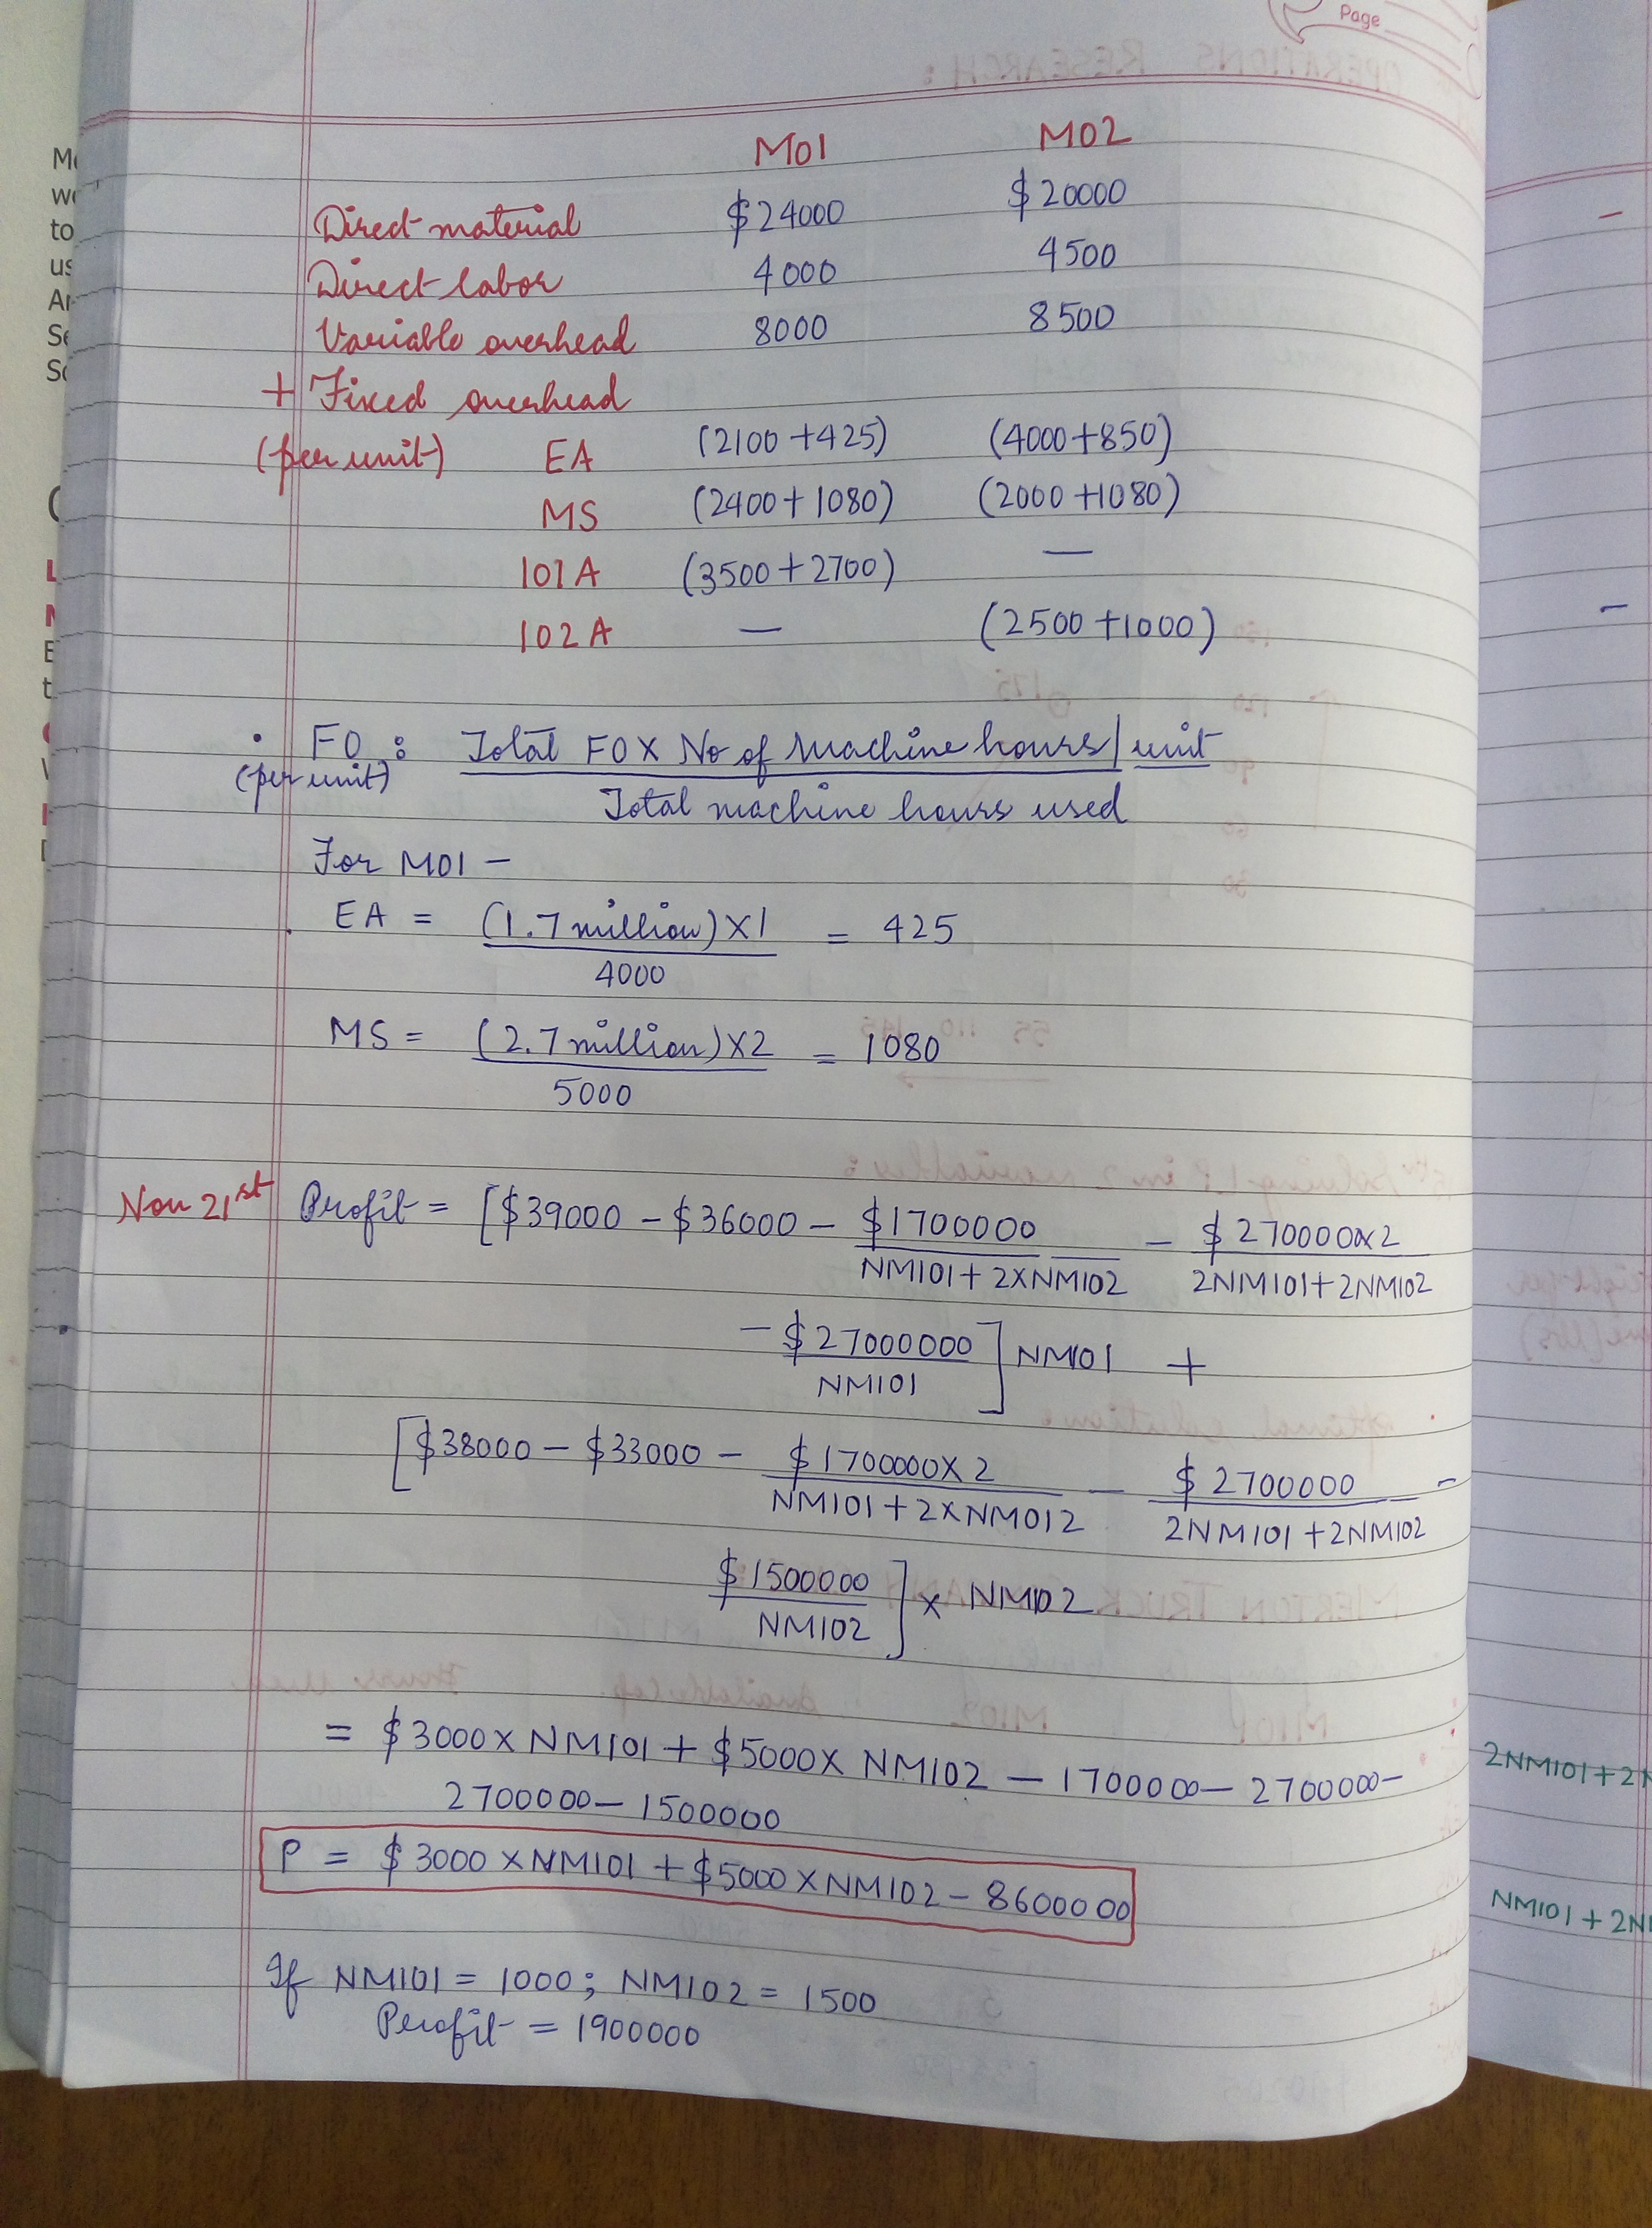 Page
M01 M02
Direct material $24000 $20000
Direct labor 4000 4500
Variable overhead 8000 8500
+ Fixed overhead
(per unit) EA (2100+425) (4000+850)
MS (2400+1080) (2000+1080)
101A (3500+2700) —
102A — (2500+1000)
• FO : Total FO X No of machine hours/unit
(per unit) Total machine hours used
For M01 —
EA = (1.7 million)X1 = 425
4000
MS = (2.7 million)X2 = 1080
5000
Nov 21st Profit = [$39000 - $36000 - $1700000 - $270000x2
NM101+2XNM102 2NM101+2NM102
- $27000000 ] NM101 +
NM101
[$38000 - $33000 - $1700000X2 - $2700000 -
NM101+2XNM012 2NM101+2NM102
$1500000 ] x NM102
NM102
= $3000X NM101 + $5000X NM102 - 1700000 - 2700000 -
2700000 - 1500000
P = $3000 XNM101 + $5000 XNM102 - 8600000
If NM101 = 1000; NM102 = 1500
Profit = 1900000
2NM101+2N
NM101+2N